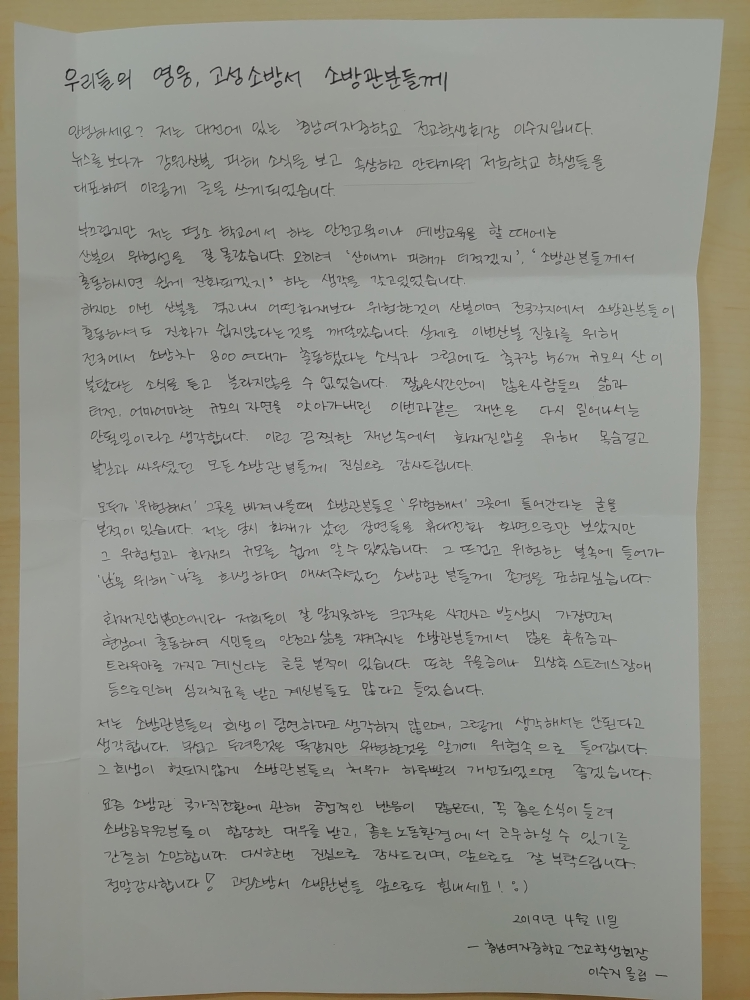 우리들의 영웅, 고성소방서 소방관분들께
안녕하세요? 저는 대전에 있는 충남여자중학교 전교학생회장 이수지입니다.
뉴스를 보다가 강원산불 피해 소식을 보고 속상하고 안타까워 저희학교 학생들을
대표하여 이렇게 글을 쓰게되었습니다.
부끄럽지만 저는 평소 학교에서 하는 안전교육이나 예방교육을 할 때에는
산불의 위험성을 잘 몰랐습니다. 오히려 '산이니까 피해가 더적겠지', '소방관분들께서
출동하시면 쉽게 진화되겠지' 하는 생각을 갖고있었습니다.
하지만 이번 산불을 겪고나니 어떤화재보다 위험한것이 산불이며 전국각지에서 소방관분들이
출동하셔도 진화가 쉽지않다는것을 깨달았습니다. 실제로 이번산불 진화를 위해
전국에서 소방차 800여대가 출동했다는 소식과 그럼에도 축구장 756개 규모의 산이
불탔다는 소식을 듣고 놀라지않을 수 없었습니다. 짧은시간안에 많은사람들의 삶과
터전, 어마어마한 규모의 자연을 앗아가버린 이번과같은 재난은 다시 일어나서는
안될일이라고 생각합니다. 이런 끔찍한 재난속에서 화재진압을 위해 목숨걸고
불길과 싸우셨던 모든소방관분들께 진심으로 감사드립니다.
모두가 '위험해서' 그곳을 빠져나올때 소방관분들은 '위험해서' 그곳에 들어간다는 글을
본적이 있습니다. 저는 당시 화재가 났던 장면들을 휴대전화 화면으로만 보았지만
그 위험성과 화재의 규모를 쉽게 알 수 있었습니다. 그 뜨겁고 위험한 불속에 들어가
'남'을 위해 '나'를 희생하며 애써주셨던 소방관 분들께 존경을 표하고싶습니다.
화재진압뿐만아니라 저희들이 잘 알지못하는 크고작은 사건사고 발생시 가장먼저
현장에 출동하여 시민들의 안전과 삶을 지켜주시는 소방관분들께서 많은 후유증과
트라우마를 가지고 계신다는 글을 본적이 있습니다. 또한 우울증이나 외상후 스트레스장애
등으로인해 심리치료를 받고 계신분들도 많다고 들었습니다.
저는 소방관분들의 희생이 당연하다고 생각하지 않으며, 그렇게 생각해서는 안된다고
생각합니다. 무섭고 두려운것은 똑같지만 위험한것을 알기에 위험속으로 들어갑니다.
그 희생이 헛되지않게 소방관분들의 처우가 하루빨리 개선되었으면 좋겠습니다.
요즘 소방관 국가직전환에 관해 긍정적인 반응이 많은데, 꼭 좋은소식이 들려
소방공무원분들이 합당한 대우를 받고, 좋은노동환경에서 근무하실 수 있기를
간절히 소망합니다. 다시한번 진심으로 감사드리며, 앞으로도 잘 부탁드립니다.
정말감사합니다! 고성소방서 소방관분들 앞으로도 힘내세요! :)
2019년 4월 11일
- 충남여자중학교 전교학생회장
이수지 올림 -